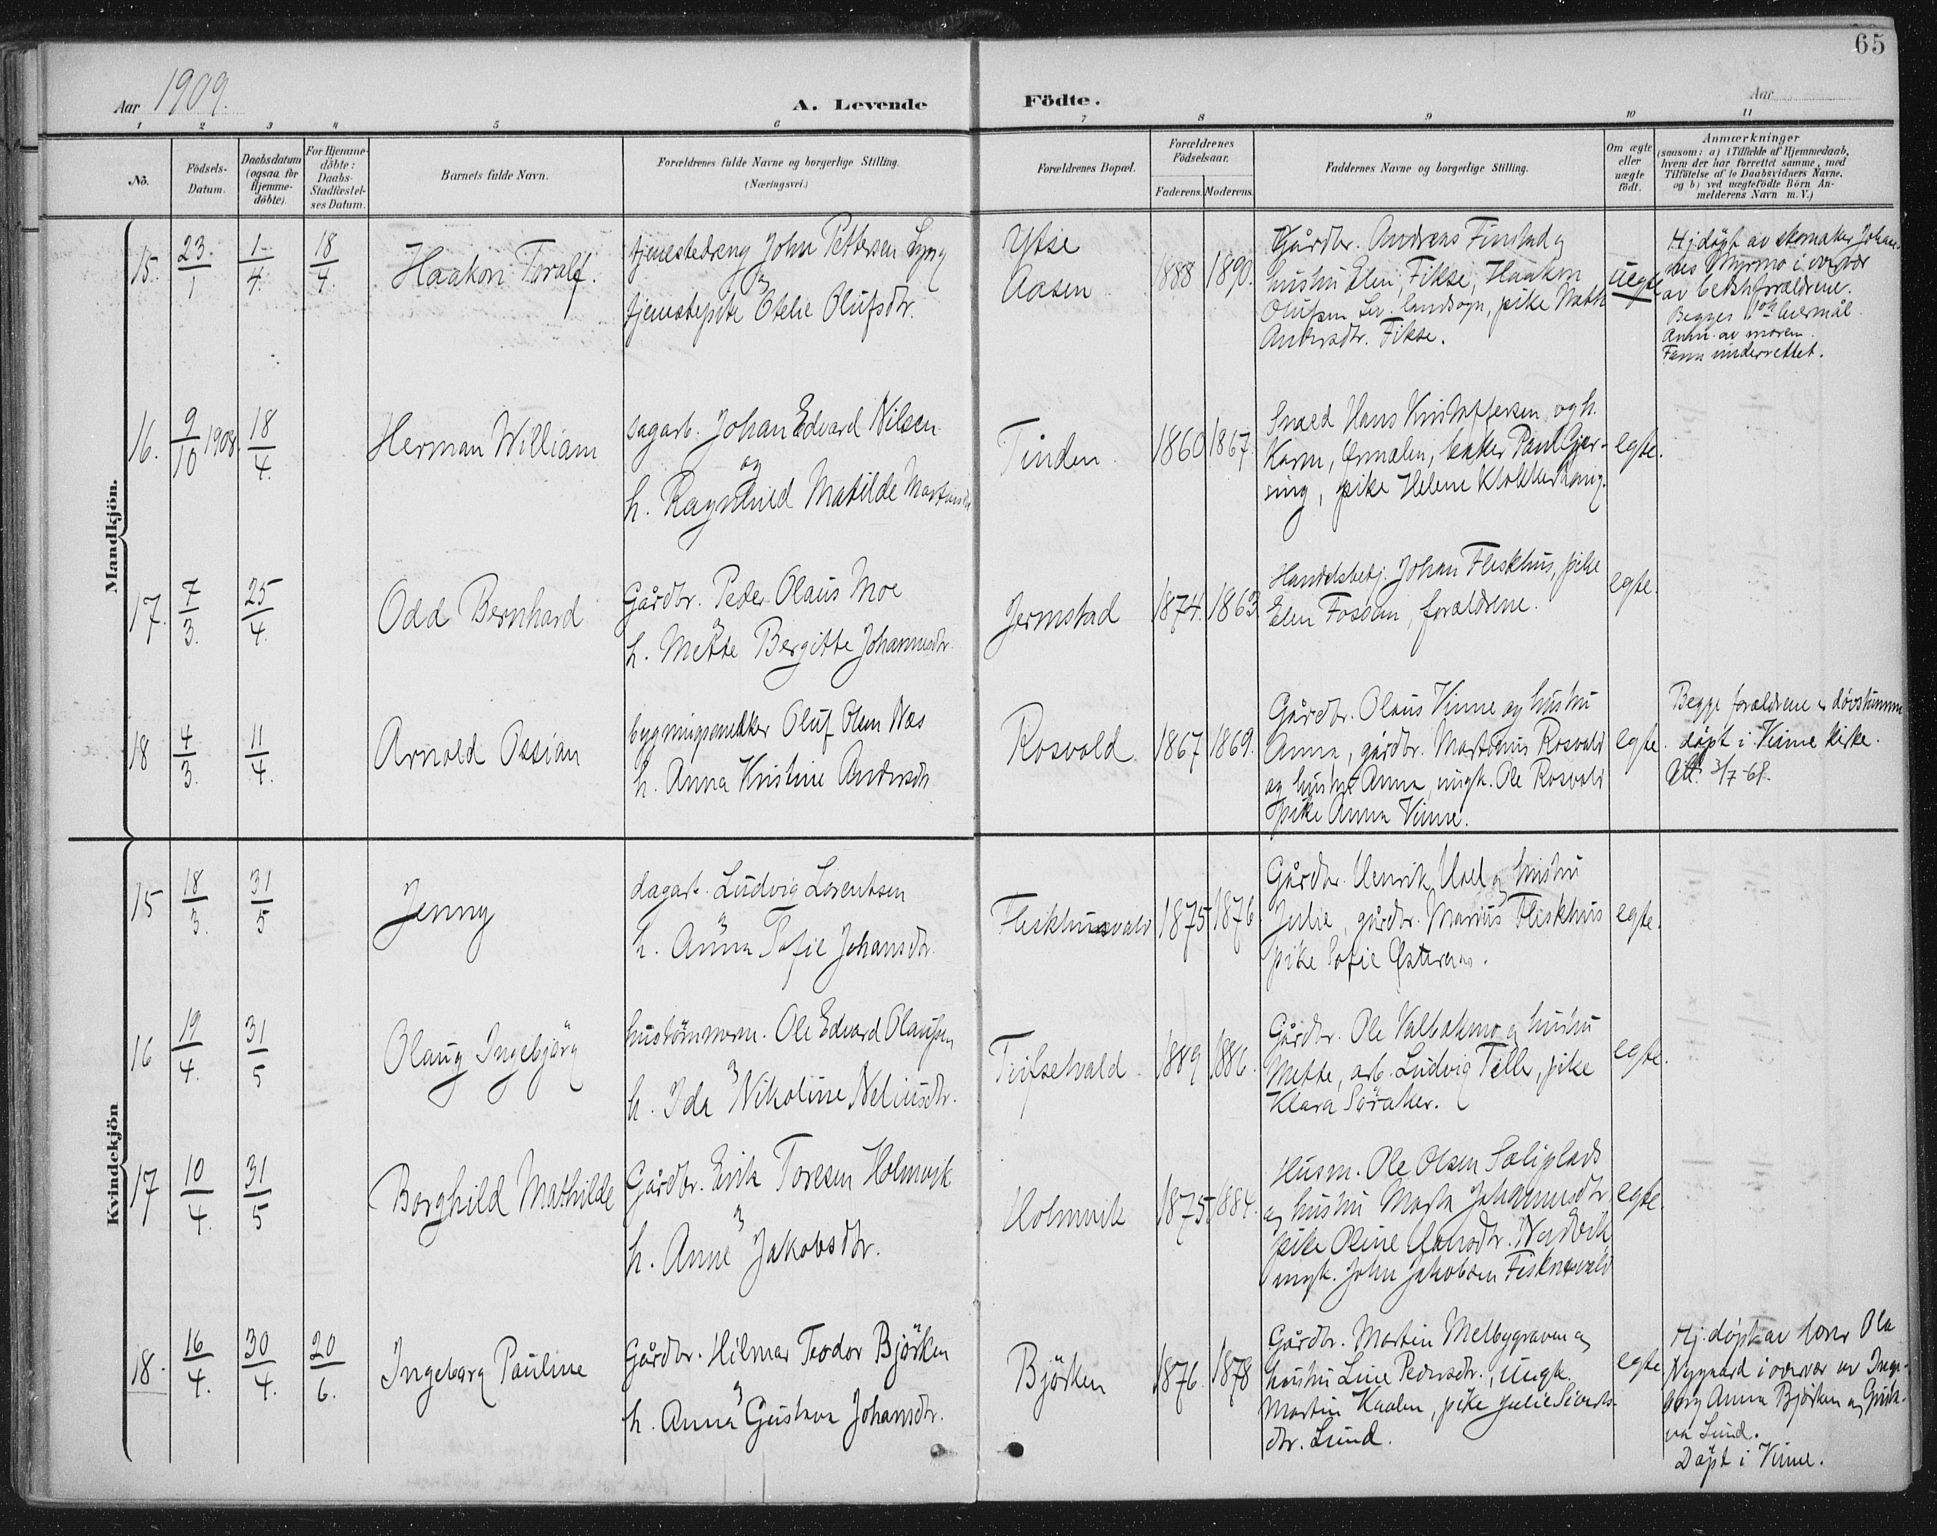 65
Aar 1909.
A. Levende Födte.
Aar
1 2 3 4 5 6 7 8 9 10 11
No.
Födsels-Datum.
Daabsdatum (ogsaa for Hjemmedöbte).
For Hjemmedöbte: Daabs-Stadfæstelses Datum.
Barnets fulde Navn.
Forældrenes fulde Navne og borgerlige Stilling.
(Næringsvei.)
Forældrenes Bopæl.
Forældrenes Födselsaar.
Faderens. Moderens.
Faddernes Navne og borgerlige Stilling.
Om ægte eller uægte födt.
Anmærkninger
(saasom: a) i Tilfælde af Hjemmedaab,
hvem der har forrettet samme, med
Tilføielse af to Daabsvidners Navne,
og b) ved uægtefödte Börn An-
melderens Navn m. V.)
Mandkjön.
15. 23/1 1/4 18/4
Haakon Toralf.
tjenestedreng John Pettersen Lyng
og
tjenestepike Otelie Olufsdtr.
Ytse
Aasen
1888 1890.
Gårdbr. Andreas Finstad og
hustru Elen, Fikse, Haakon
Olufsen landsogn, pike
Fikse.
uegte
Hj.døpt av skomaker Johan-
nes Myrmo i overvær
av forældrene.
Begges 1ste leiermål.
Anm. av moren.
Faren underrettet.
16. 9/10 1908 18/4
Herman William
dagarb. Johan Edvard Nilsen
og
h. Ragnhild Matilde
Tinden.
1860 1867.
Smed Hans Kristoffersen og h.
Karen, Ørmelen, Paul Gjer-
sing, pike Helene
egte.
17. 7/3. 25/4.
Odd Bernhard
Gårdbr. Peder Olaus Moe
og
h. Mette Bergitte Johannesdtr.
Jermstad
1874. 1863
Handelsbetj. Johan Fleskhus, pike
Elen forældrene.
egte.
18 4/3. 11/4.
Arnold Ossian
bygningssnekker Oluf Olsen Næs
h. Anna Kristine Andersdtr
Rosvold
1867 1869.
Gårdbr. Olaus Vinne og hustru
Anna, gårdbr. Martinus Rosvold
og hustru Anna, ungk. Ole Rosvold
pike Anna Vinne.
egte.
Begge forældrene er døvstumme
døpt i Vinne kirke.
Att. 3/7-68.
Kvindekjön
15 18/3. 31/5
Jenny
dagarb. Ludvig Lorentsen
og
h. Anna Sofie Johansdtr.
Fleskhusvald
1875 1876
Gårdbr. Henrik og hustru
Julie, gårdbr. Marius Fleskhus
pike Sofie
egte.
16 19/4. 31/5
Olaug Ingebjörg
hustömmerm. Ole Edvard Olaussen
og
h. Ida Nikoline Neliusdtr.
1889 1886.
Gårdbr. Ole og hustru
Mette, arb. Ludvig Tiller, pike
Klara Söraker.
egte.
17 10/4. 31/5
Borghild Mathilde
Gårdbr. Erik Toresen Holmvik
og
h. Anne Jakobsdtr.
Holmvik
1875. 1884.
Husm. Ole Olsen
og hustru Marta Johannesdtr
pike Oline
ungk. John Jakobsen
egte.
18. 16/4. 30/4. 20/6.
Ingeborg Pauline
Gårdbr. Hilmar Teodor Björken
og
h. Anna Gustava Johansdtr.
Björken
1876. 1878
Gårdbr. Martin Melbygraven og
hustru Line Pedersdtr., ungk.
Martin Kaalen, pike Julie Siverts-
dtr. Lund.
egte
Hj.døpt av lærer Ola
Nygaard i overvær av Inge-
borg Anna Björken og
Lund.
Döpt i Vinne.